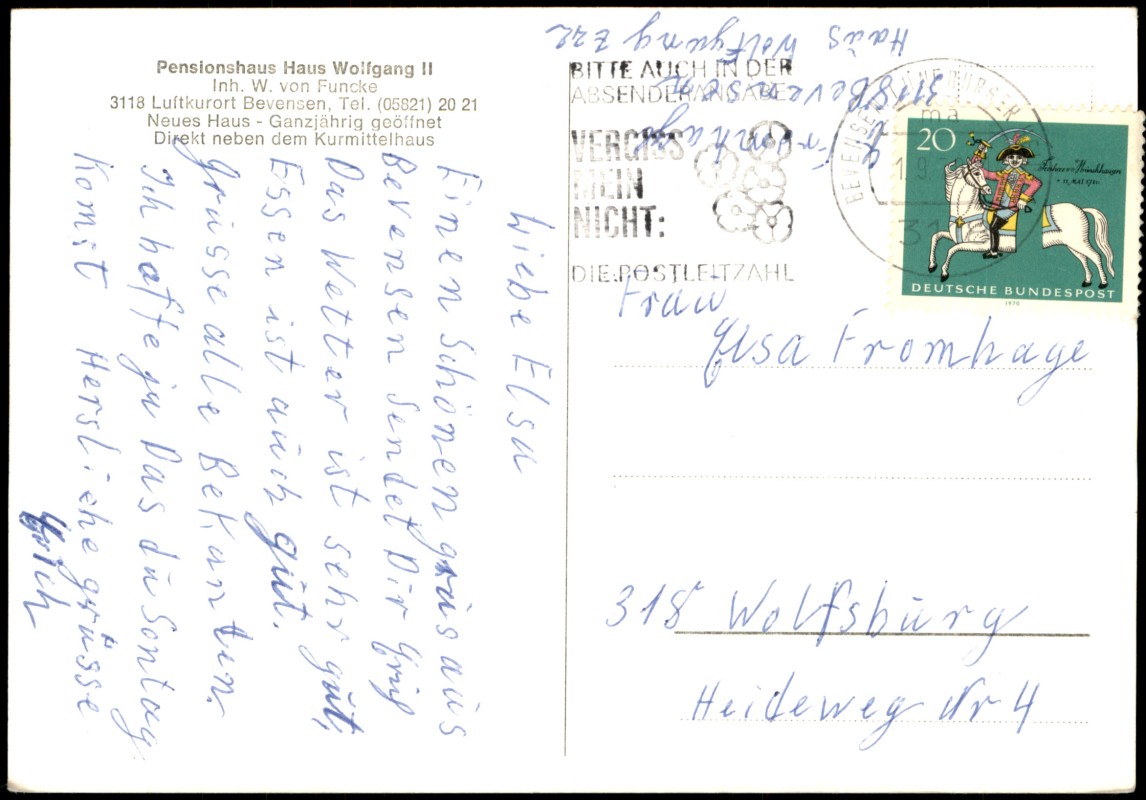 Pensionshaus Haus Wolfgang II
Inh. W. von Funcke
3118 Luftkurort Bevensen, Tel. (05821) 20 21
Neues Haus - Ganzjährig geöffnet
Direkt neben dem Kurmittelhaus
Liebe Elsa
Einen Schönen grüs aus
Bevensen sendet Dir
Das Wetter ist sehr gut,
Essen ist auch gut.
Grüsse alle Bekanten.
Ich hoffe ja Das du Sontag
Komst Hersliche grüsse
Haus Wolfgung
3118 Bevensen
Fromhage
BITTE AUCH IN DER
ABSENDERANGABE
VERGISS
MEIN
NICHT:
DIE POSTLEITZAHL
BEVENSEN
20
12. MAI 1720
DEUTSCHE BUNDESPOST
1970
Frau
Elsa Fromhage
318 Wolfsburg
Heideweg Nr 4